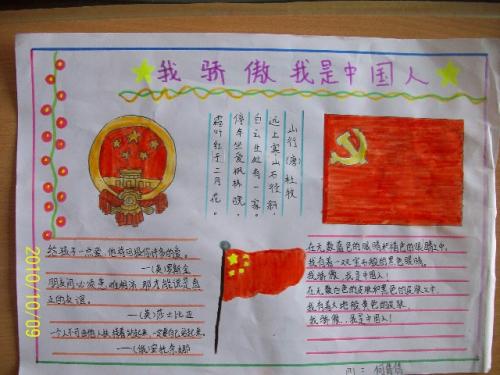 我骄傲我是中国人
山行(唐)杜牧
远上寒山石径斜，
白云生处有一家。
停车坐爱枫林晚，
霜叶红于二月花。
给孩子一点爱，他将回报你许多的爱。
——(英)罗斯金
朋友间必须患难相济，那才能说是真
正的友谊。
——(英)莎士比亚
一个人不可由他人扶持着站起来，一定要自己站起来。
在无数蓝色的眼睛和褐色的眼睛之中，
我有着一双宝石般的黑色眼睛。
我骄傲，我是中国人！
在无数白色的皮肤和黑色的皮肤之中，
我有着大地般黄色的皮肤，
我骄傲，我是中国人！
2010/10/09